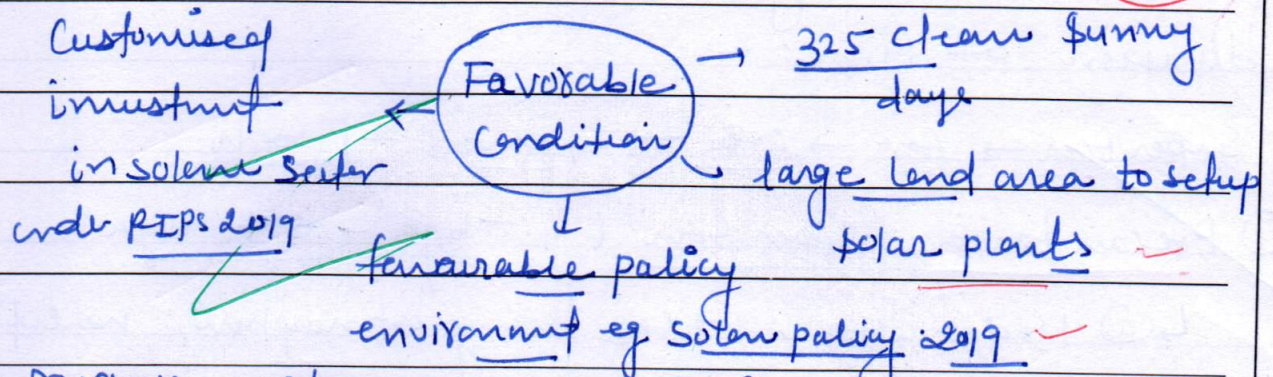 Customised
investment
in solar sector
under RIPS 2019
Favorable
Condition
→ 325 clear sunny
days
large land area to setup
solar plants
favourable policy
environment eg solar policy 2019